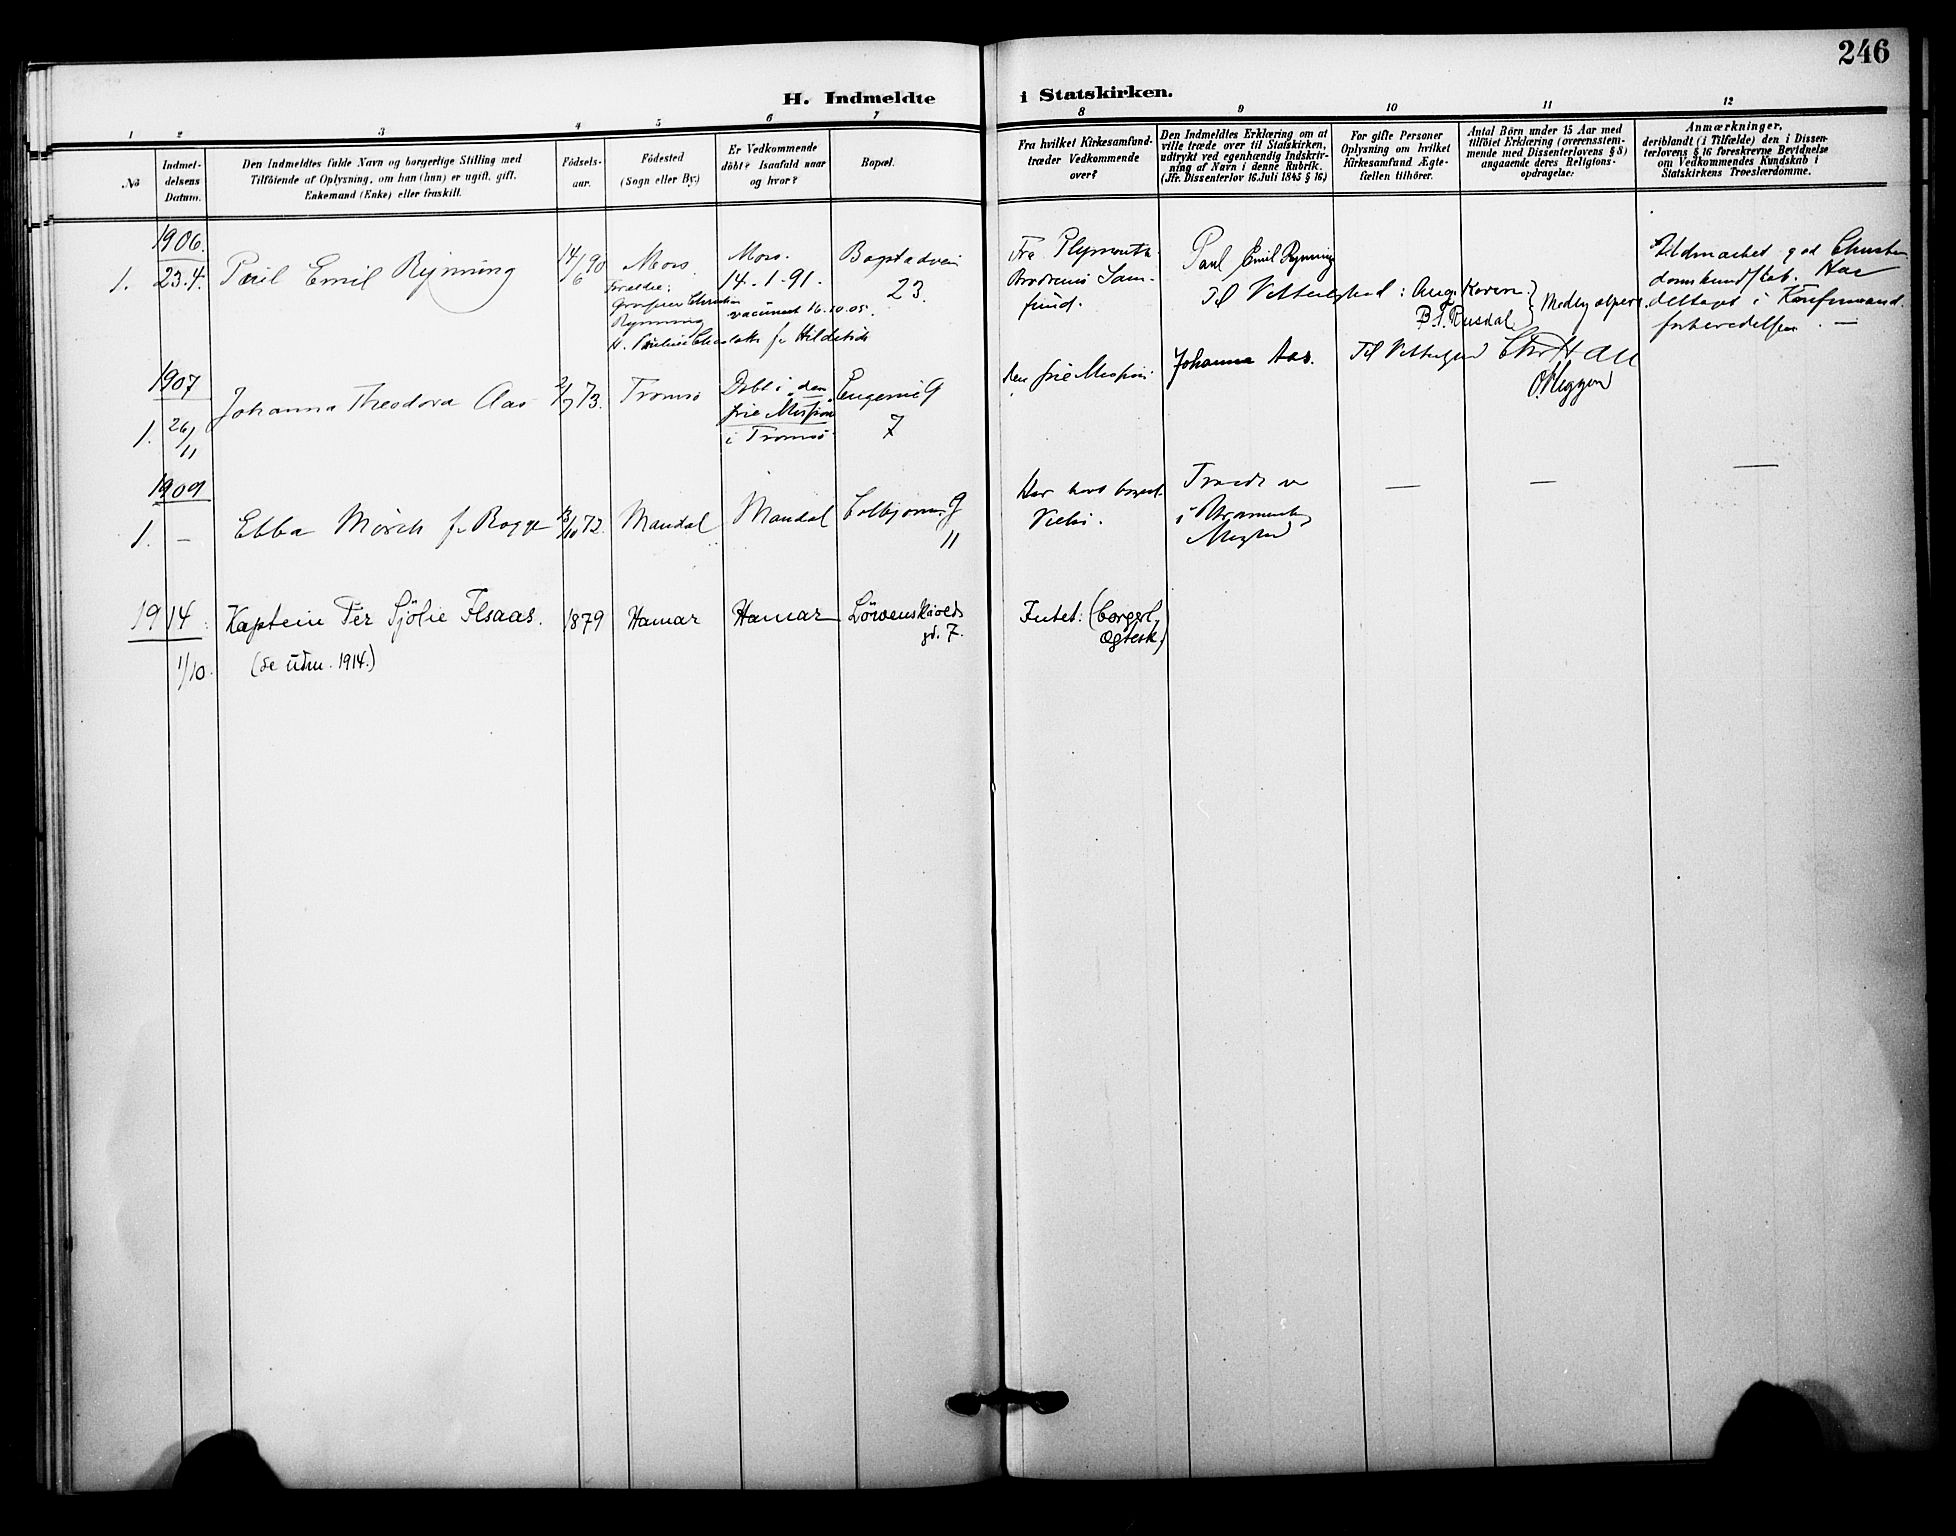 246
H. Indmeldte i Statskirken.
1 2 3 4 5 6 7 8 9 10 11 12
No
Indmel-
delsens
Datum.
Den Indmeldtes fulde Navn og borgerlige Stilling med
Tilföiende af Oplysning, om han (hun) er ugift, gift,
Enkemand (Enke) eller fraskilt.
Födsels-
aar.
Födested
(Sogn eller By.)
Er Vedkommende
döbt? Isaafald naar
og hvor?
Bopæl.
Fra hvilket Kirkesamfund
træder Vedkommende
over?
Den Indmeldtes Erklæring om at
ville træde over til Statskirken,
udtrykt ved egenhændig Indskriv-
ning af Navn i denne Rubrik.
(Jfr. Dissenterlov 16. Juli 1845 § 16)
For gifte Personer
Oplysning om hvilket
Kirkesamfund Ægte-
fællen tilhörer.
Antal Börn under 15 Aar med
tilföiet Erklæring (overensstem-
mende med Dissenterlovens § 8)
angaaende deres Religions-
opdragelse:
Anmærkninger,
deriblandt (i Tilfælde) den i Dissen-
terlovens § 16 foreskrevne Bevidnelse
om Vedkommendes Kundskab i
Statskirkens Troeslærdomme.
1906.
1. 23.4. Paul Emil Rynning
14/6 90
Moss
Forældre:
Christian
Rynning
f. Hildetids
Moss.
14.1.91.
vaccineret 16.10.05.
23.
Fra Plymouth
Brödrenes Sam-
fund.
Paul Emil Rynning
Til Vitterlighed: Aug. Koren
B. T. Rusdal
god Christen
domskundskab. Har
deltaget i Konfirmand
forberedelsen. —
1907
1. 26/11 Johanna Theodora Aas
2/9 73.
Tromsö
Döbt i den
frie Mission
i Tromsö.
Eugenies G
7
den frie Mission
Johanna Aas.
Til Vitterlighed
O. Heggen
1909
1. — Ebba Mörch f. Rogge
13/10 72.
Mandal
Mandal
Colbjörns. G
11
Har
Træder
i
— — —
1914
1/10.
Kaptein Per Sjölie Flsaas.
(se udm. 1914.)
1879
Hamar
Hamar
Lövenskiolds
gd. 7.
Intet: (borgerl.
Ægtesk.)